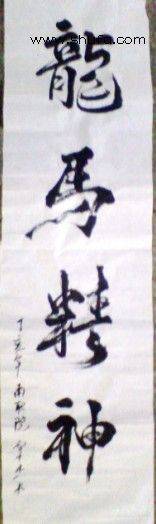 www.shufa.com
龍馬精神
丁亥年